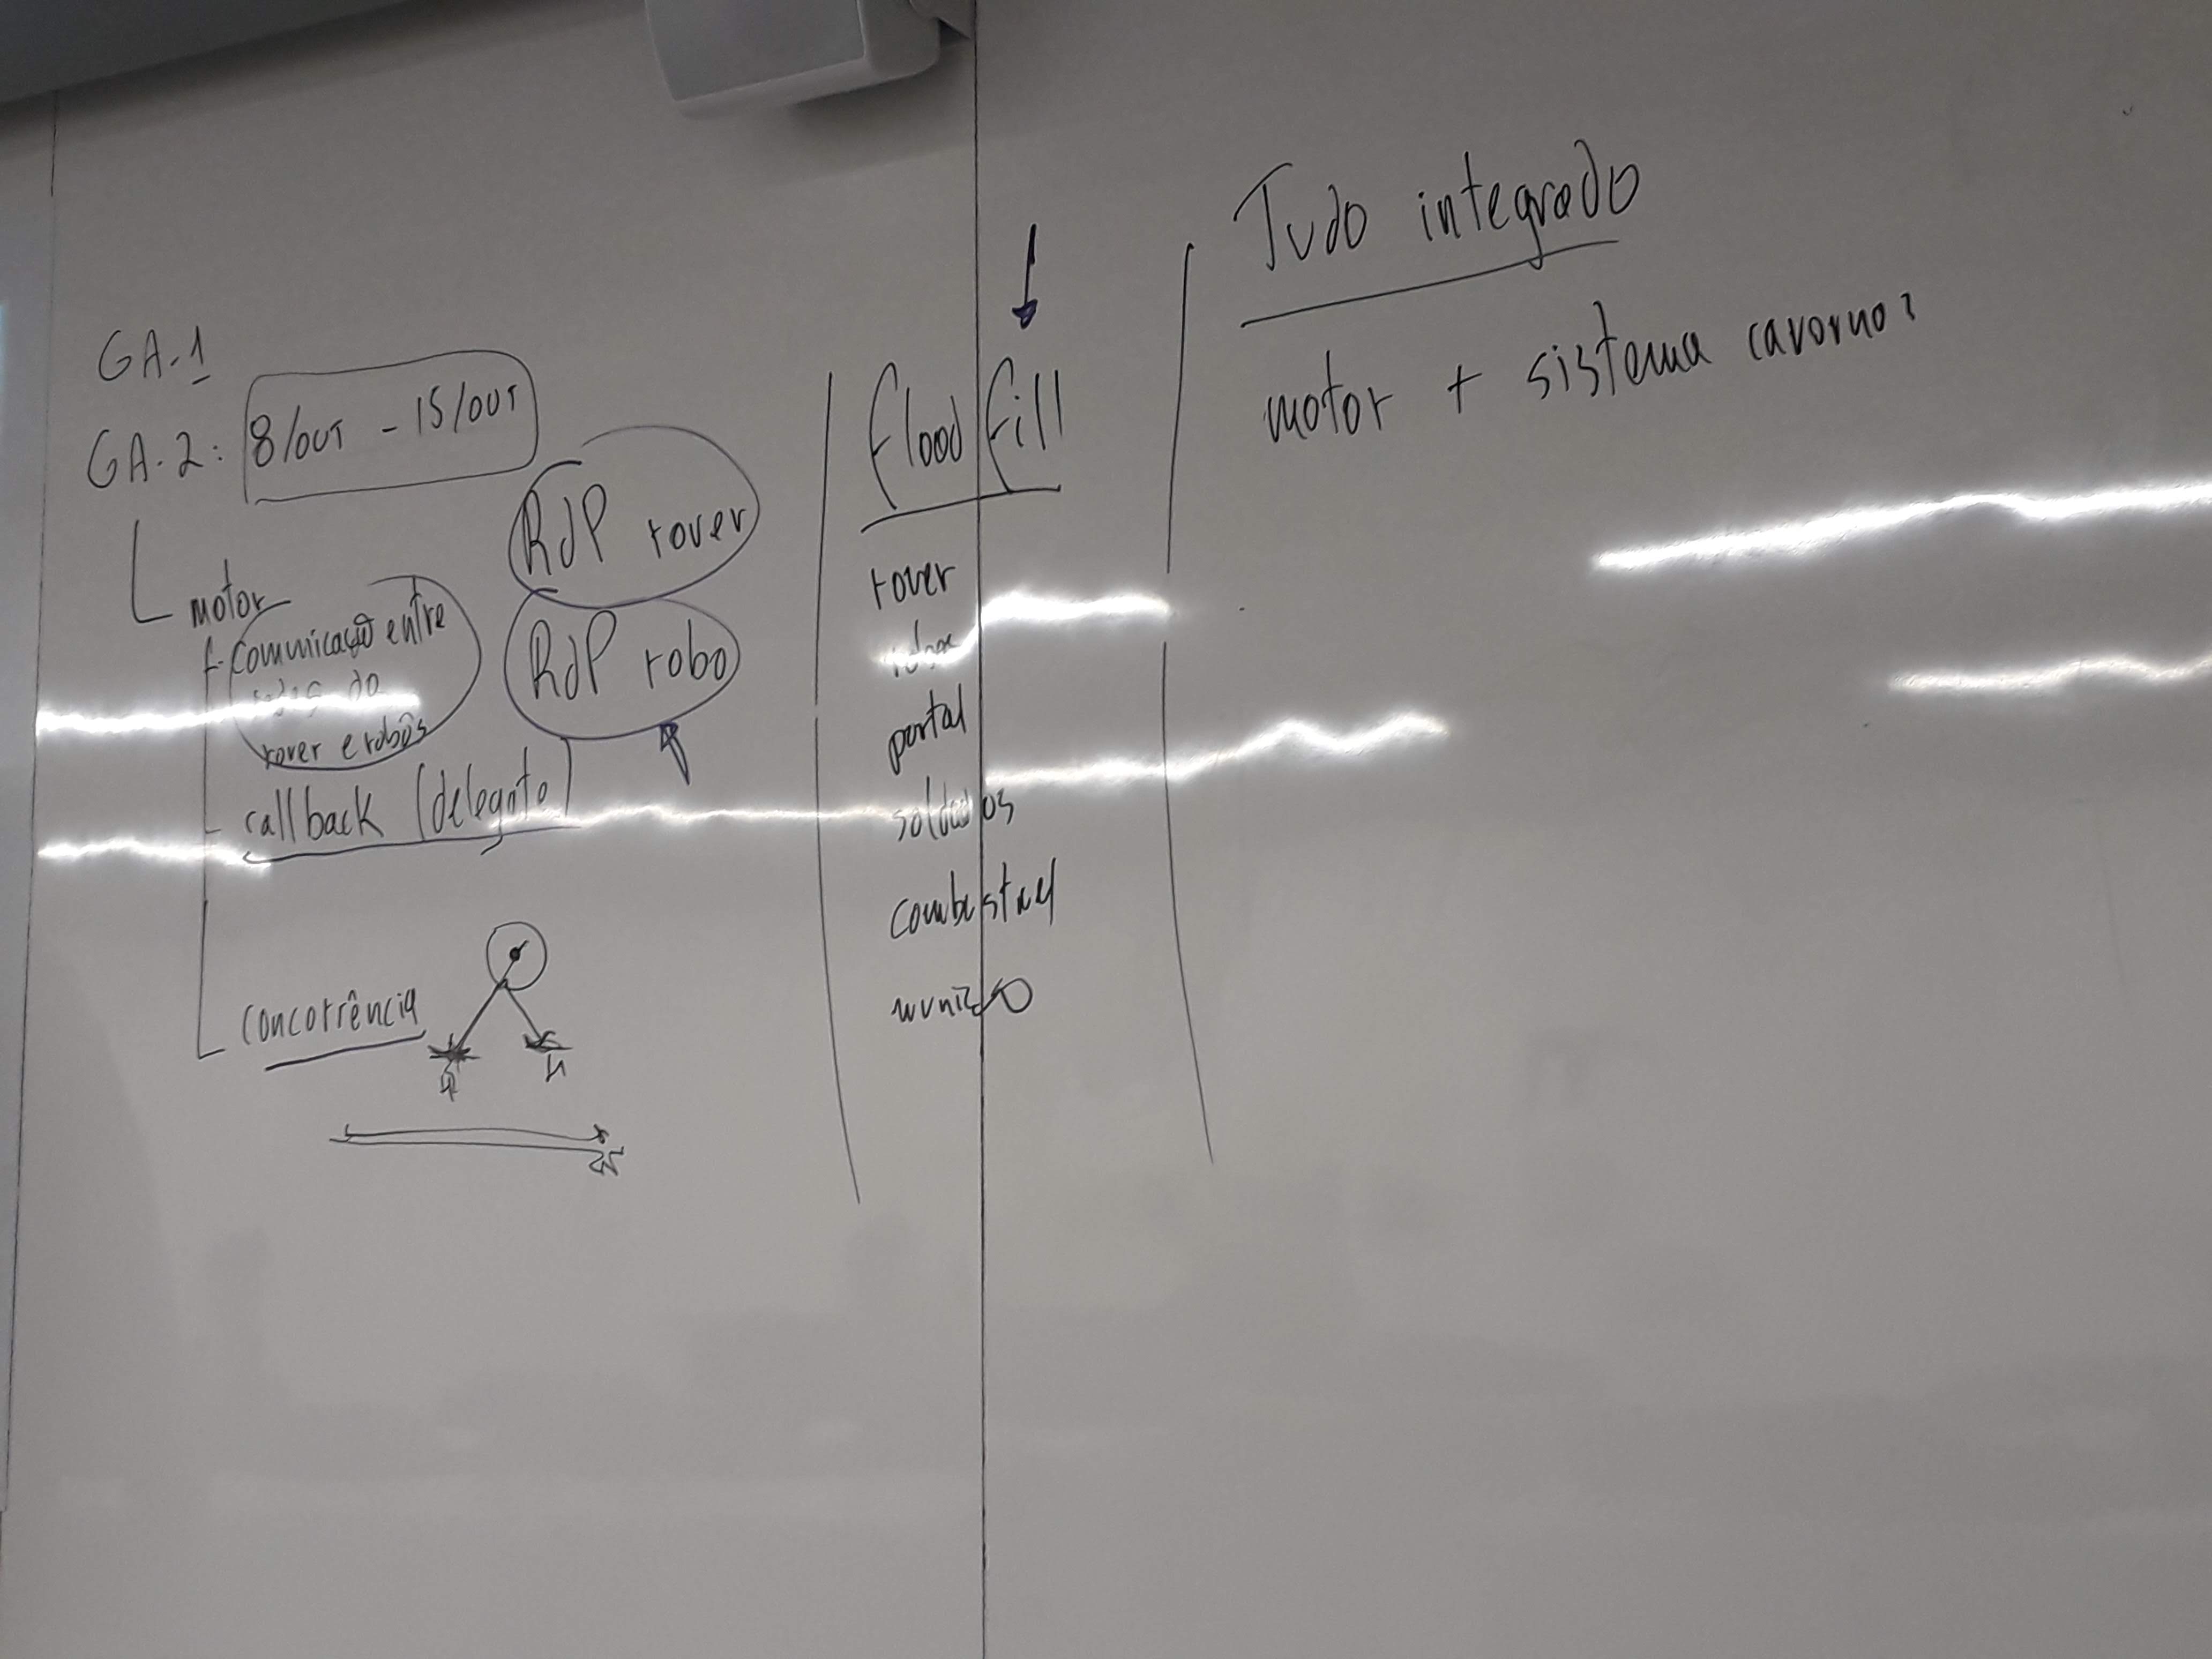 GA.1
GA.2: 8/OUT - 15/OUT
motor
- comunicação entre
redes do
rover e robôs
- callback (delegate)
concorrência
RdP rover
RdP robo
flood fill
rover
robos
portal
soldados
combustível
munição
Tudo integrado
motor + sistema